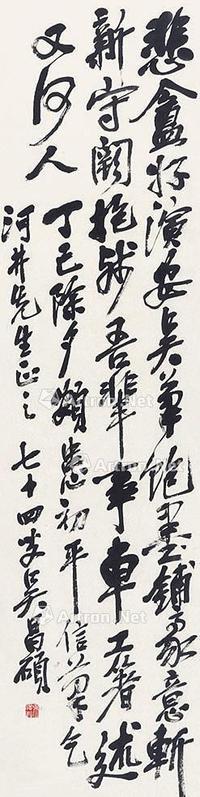 悲盦好演安吳筆飽墨鋪豪意斬
新守闕抱殘吾輩事車工著述
又何人
丁巳除夕患初平信筆乞
河井先生正之 七十四叟吳昌碩
Artron.Net